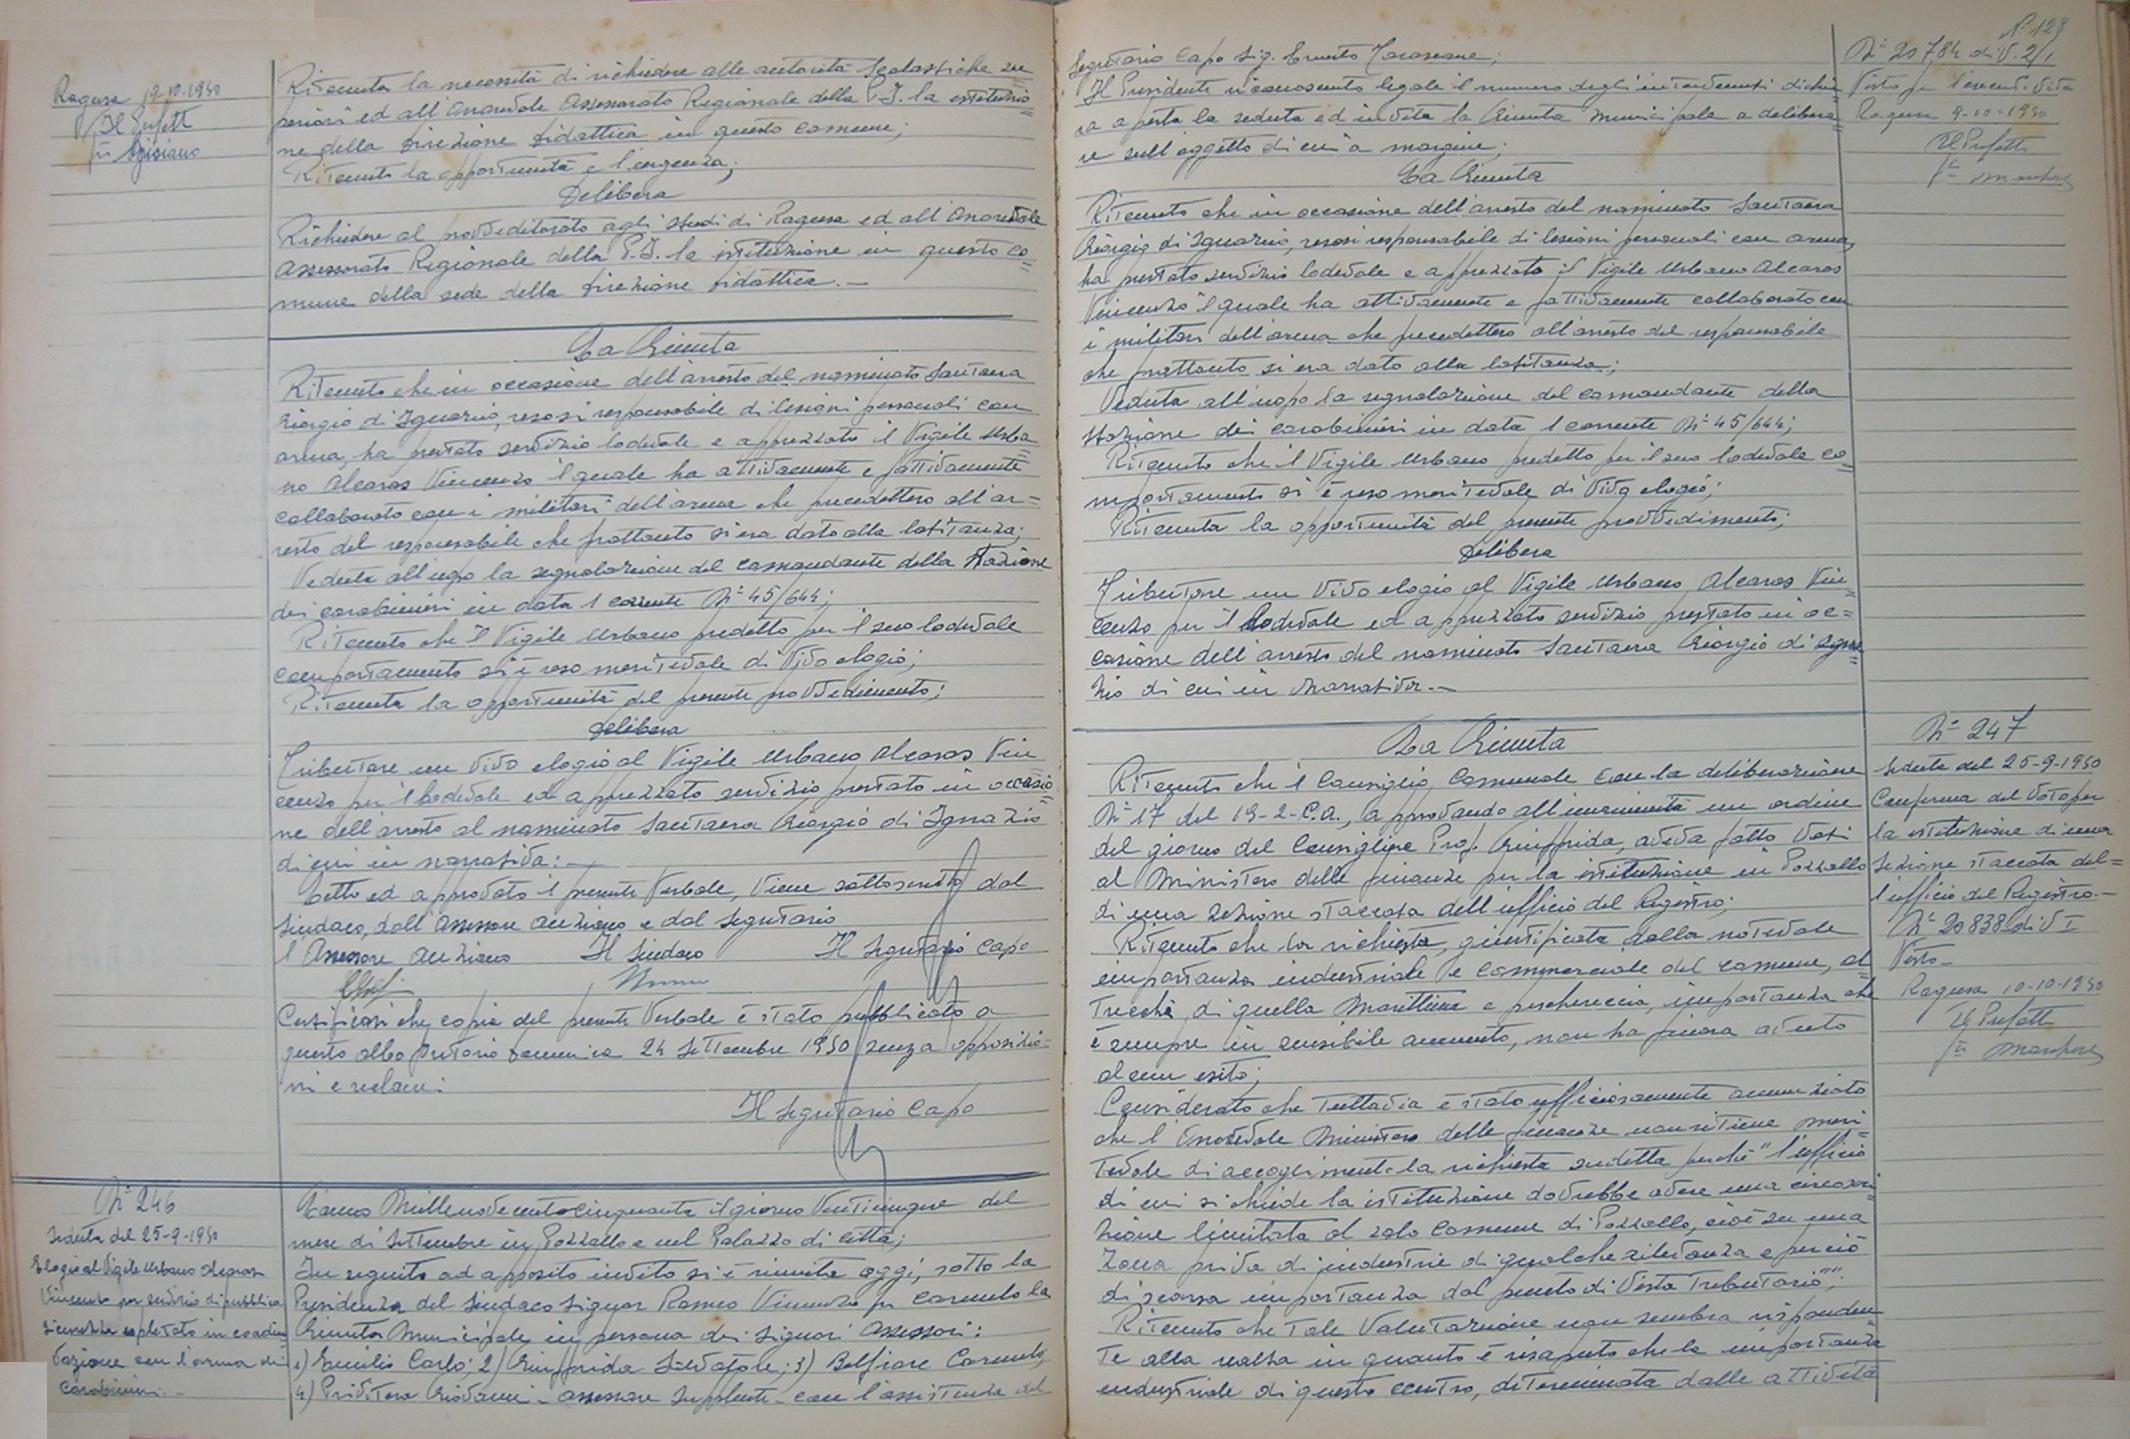 Ragusa 9.10.1950
Il Prefetto
Ritenuta la necessità di richiedere alle autorità Scolastiche su=
periori ed all'Onorevole Assessorato Regionale della P.I. la istituzio=
ne della Direzione Didattica in questo Comune;
Ritenuta la opportunità e l'urgenza;
Delibera
Richiedere al provveditorato agli studi di Ragusa ed all'Onorevole
Assessorato Regionale della P.I. la istituzione in questo co=
mune della sede della Direzione Didattica.—
La Giunta
Ritenuto che in occasione dell'arresto del nominato Santaera
Giorgio di Ignazio, resosi responsabile di lesioni personali con
arma, ha prestato servizio lodevole e apprezzato il Vigile Urba=
no Alcaras Vincenzo il quale ha attivamente e fattivamente
collaborato con i militari dell'arma che procedettero all'ar=
resto del responsabile che frattanto si era dato alla latitanza;
Veduta all'uopo la segnalazione del comandante della Stazione
dei carabinieri in data 1 corrente N° 45/644;
Ritenuto che il Vigile Urbano predetto per il suo lodevole
comportamento si è reso meritevole di vivo elogio;
Ritenuta la opportunità del presente provvedimento;
Delibera
Tributare un vivo elogio al Vigile Urbano Alcaras Vin
cenzo per il lodevole ed apprezzato servizio prestato in occasio=
ne dell'arresto al nominato Santaera Giorgio di Ignazio
di cui in narrativa:—
Letto ed approvato il presente Verbale, viene sottoscritto dal
Sindaco, dall'Assessore anziano e dal Segretario
l'Assessore anziano Il Sindaco Il Segretario Capo
Certificasi che copia del presente Verbale è stato pubblicato a
questo albo Pretorio domenica 24 Settembre 1950 senza opposizio=
ni e reclami:
Il Segretario Capo
N° 246
Seduta del 25-9-1950
Elogio al Vigile Urbano Alcaras
Vincenzo per servizio di pubblica
sicurezza espletato in coadiu
vazione con l'arma dei
carabinieri.—
L'anno Millenovecentocinquanta il giorno Venticinque del
mese di Settembre in Pozzallo e nel Palazzo di città;
In seguito ad apposito invito si è riunita oggi, sotto la
Presidenza del Sindaco Signor Romeo Vincenzo fu Carmelo la
Giunta Municipale in persona dei Signori Assessori:
1) Emilio Carlo; 2) Giuffrida Salvatore; 3) Belfiore Carmelo;
4) Privitera Giovanni - assessore Supplente - con l'assistenza del
N° 128
Segretario Capo Sig. Ernesto
Il Presidente riconosciuto legale il numero degli intervenuti dichia
ra aperta la seduta ed invita la Giunta Municipale a delibera=
re sull'oggetto di cui a margine;
N° 20784 di V. 2/1
Visto
Ragusa 9-10-1950
Il Prefetto
La Giunta
Ritenuto che in occasione dell'arresto del nominato Santaera
Giorgio di Ignazio, resosi responsabile di lesioni personali con arma,
ha prestato servizio lodevole e apprezzato il Vigile Urbano Alcaras
Vincenzo il quale ha attivamente e fattivamente collaborato con
i militari dell'arma che procedettero all'arresto del responsabile
che frattanto si era dato alla latitanza;
Veduta all'uopo la segnalazione del comandante della
stazione dei carabinieri in data 1 corrente N° 45/644;
Ritenuto che il Vigile Urbano predetto per il suo lodevole co=
mportamento si è reso meritevole di vivo elogio;
Ritenuta la opportunità del presente provvedimento;
Delibera
Tributare un vivo elogio al Vigile Urbano Alcaras Vin=
cenzo per il lodevole ed apprezzato servizio prestato in oc=
casione dell'arresto del nominato Santaera Giorgio di Igna=
zio di cui in narrativa.—
La Giunta
Ritenuto che il Consiglio Comunale con la deliberazione
N° 17 del 19-2-c.a., approvando all'unanimità un ordine
del giorno del Consigliere Prof. Giuffrida, aveva fatto voti
al Ministero delle finanze per la istituzione in Pozzallo
di una sezione staccata dell'ufficio del Registro;
Ritenuto che la richiesta, giustificata dalla notevole
importanza industriale e commerciale del comune, ol
trechè di quella marittima e peschereccia, importanza che
è sempre in sensibile aumento, non ha finora avuto
alcun esito;
Considerato che tuttavia è stato ufficiosamente annunziato
che l'Onorevole Ministero delle finanze non ritiene meri=
tevole di accoglimento la richiesta sudetta perchè "l'ufficio
di cui si chiede la istituzione dovrebbe avere una circoscri=
zione limitata al solo comune di Pozzallo, cioè su una
zona priva di industrie di qualche rilevanza e perciò
di scarsa importanza dal punto di vista tributario";
Ritenuto che tale valutazione non sembra risponden=
te alla realtà in quanto è risaputo che la importanza
industriale di questo centro, determinata dalle attività
N° 247
Seduta del 25-9-1950
Conferma del voto per
la istituzione di una
Sezione staccata del=
l'ufficio del Registro.—
N° 20838 di V I
Visto—
Ragusa 10-10-1950
Il Prefetto